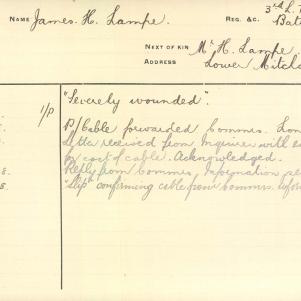 3rd L. T
NAME James H. Lampe. REG. &C. Bat
NEXT OF KIN Mr. H. Lampe
ADDRESS Lower Mitch
1/P "Severely wounded".
P/Cable forwarded Commrs. Lon
Letter received from Inquirer with
by cost of cable. Acknowledged.
8. Reply from Commrs. Information
8. "Slip" confirming cable from Commrs. infor